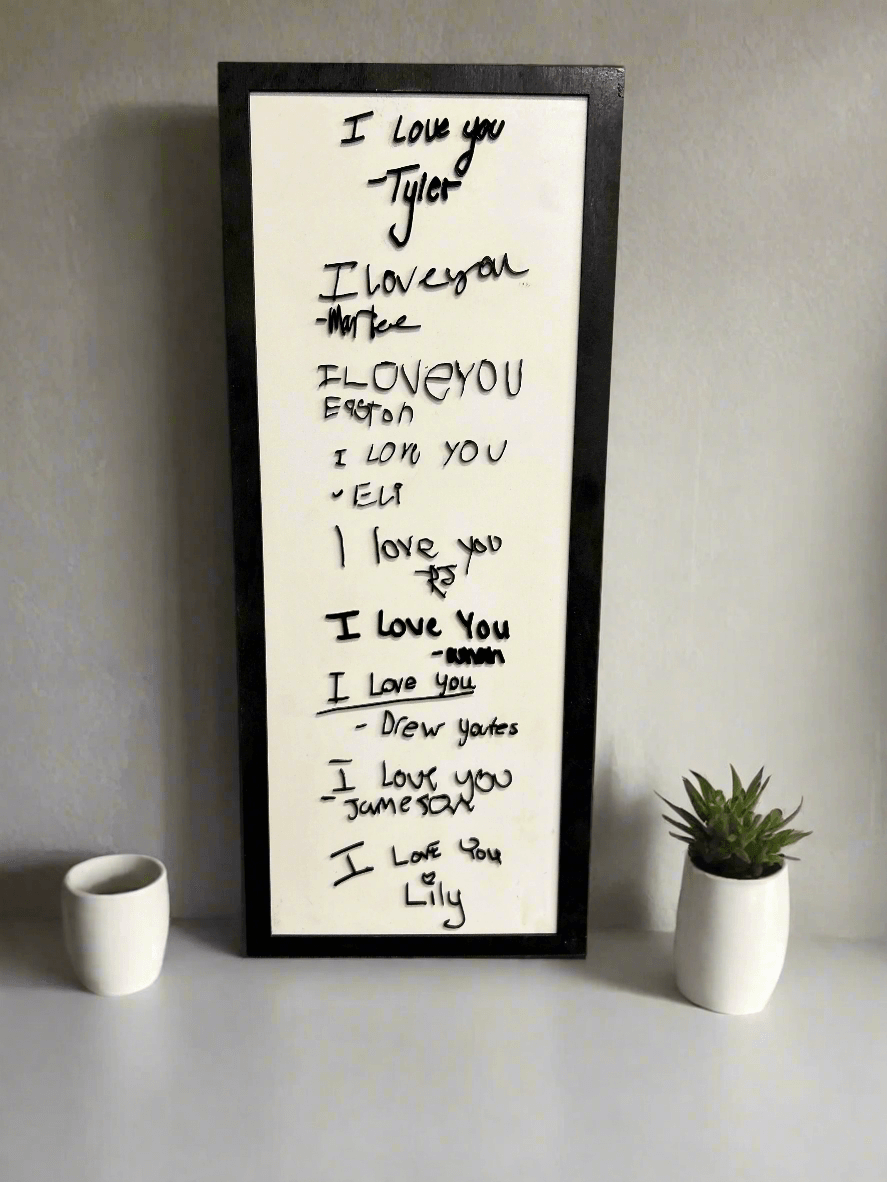 I Love you
-Tyler
I love you
I LOVE YOU
Easton
I LOVE YOU
- ELI
I love you
I Love You
I Love you
- Drew yoates
I Love you
- Jameson
I Love You
Lily